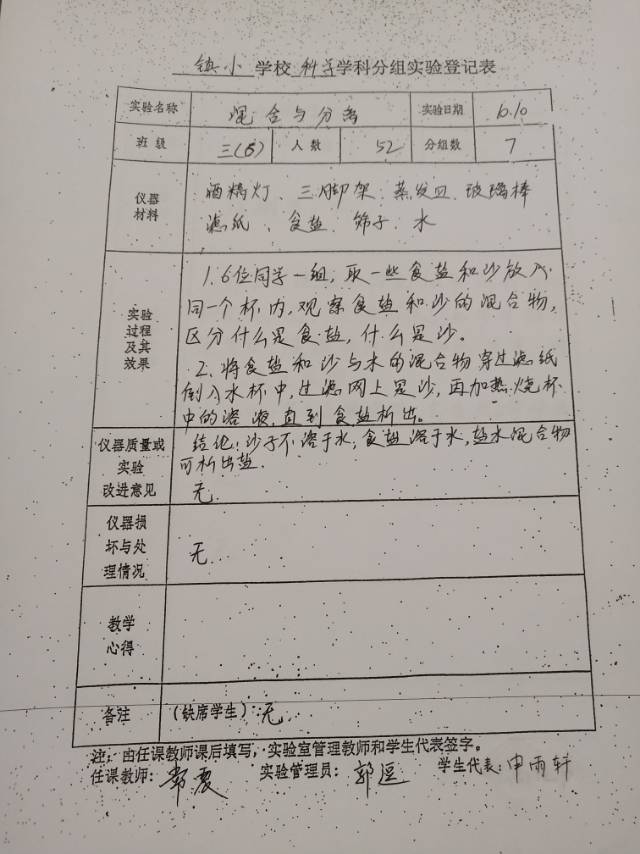 镇小学校科学学科分组实验登记表
实验名称 混合与分离 实验日期 6.10
班级 三(6) 人数 52 分组数 7
仪器材料 酒精灯、三脚架、蒸发皿、玻璃棒
滤纸、食盐、筛子、水
实验过程及其效果
1.6位同学一组,取一些食盐和沙放入
同一个杯内,观察食盐和沙的混合物,
区分什么是食盐,什么是沙。
2.将食盐和沙与水的混合物穿过滤纸
倒入水杯中,过滤网上是沙,再加热烧杯
中的溶液,直到食盐析出。
结论:沙子不溶于水,食盐溶于水,盐水混合物
可析出盐.
仪器质量或实验改进意见 无.
仪器损坏与处理情况 无.
教学心得
备注 (缺席学生):无.
注:由任课教师课后填写,实验室管理教师和学生代表签字。
任课教师: 实验管理员:郭逗 学生代表:申雨轩